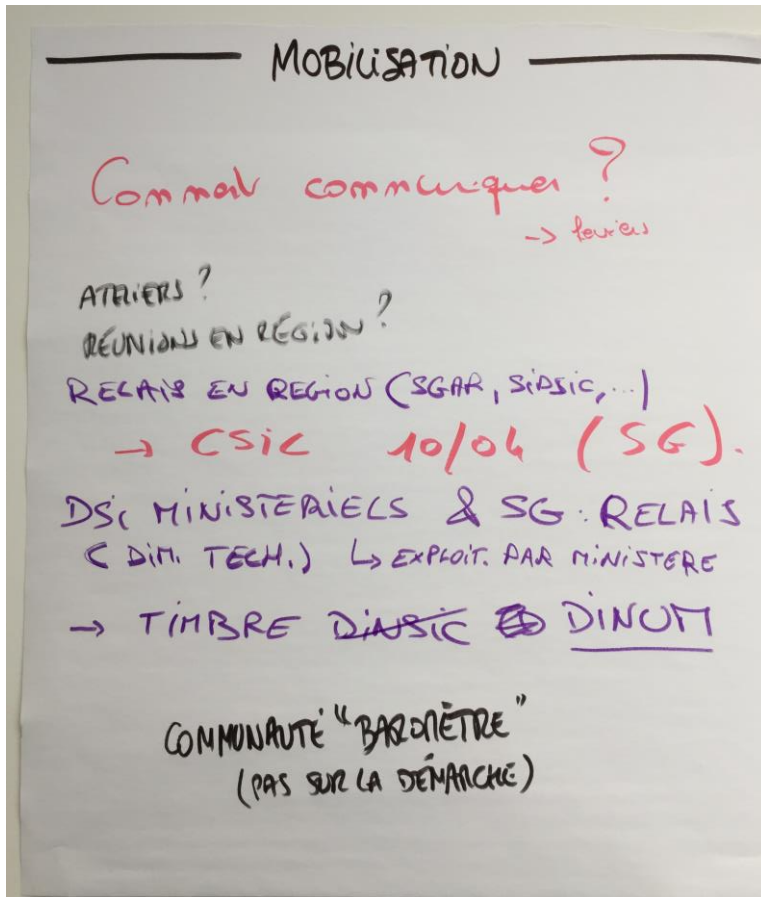 MOBILISATION
Comment communiquer ?
→ leviers
ATELIERS ?
RÉUNIONS EN RÉGION ?
RELAIS EN REGION (SGAR, SIDSIC, ...)
→ CSIC 10/04 (SG).
DSI MINISTERIELS & SG : RELAIS
( DIM. TECH.) ↳ EXPLOIT. PAR MINISTERE
→ TIMBRE DINSIC DINUM
COMMUNAUTÉ "BAROMÈTRE"
(PAS SUR LA DÉMARCHE)